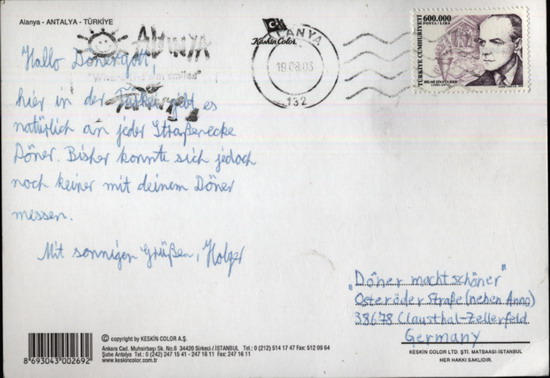 Alanya - ANTALYA - TÜRKİYE
ALANYA
"Where the sun smiles"
Keskin Color
ALANYA
19.08.03
132
600.000
POSTA - LİRA
TÜRKİYE CUMHURİYETİ
Hallo Dönergott!
hier in der Türkei gibt es
natürlich an jeder Straßenecke
Döner. Bisher konnte sich jedoch
noch keiner mit deinem Döner
messen.
Mit sonnigen Grüßen, Holger
"Döner macht schöner"
Osteröder Straße (neben Anno)
38678 Clausthal-Zellerfeld
Germany
8 693043 002692
© copyright by KESKİN COLOR A.Ş.
Ankara Cad. Muhsirbaşı Sk. No.6 34420 Sirkeci / İSTANBUL Tel.: 0 (212) 514 17 47 Fax: 512 09 64
Şube Antalya Tel.: 0 (242) 247 15 41 - 247 16 11 Fax: 247 16 11
www.keskincolor.com.tr
KESKİN COLOR LTD. ŞTİ. MATBAASI-İSTANBUL
HER HAKKI SAKLIDIR.